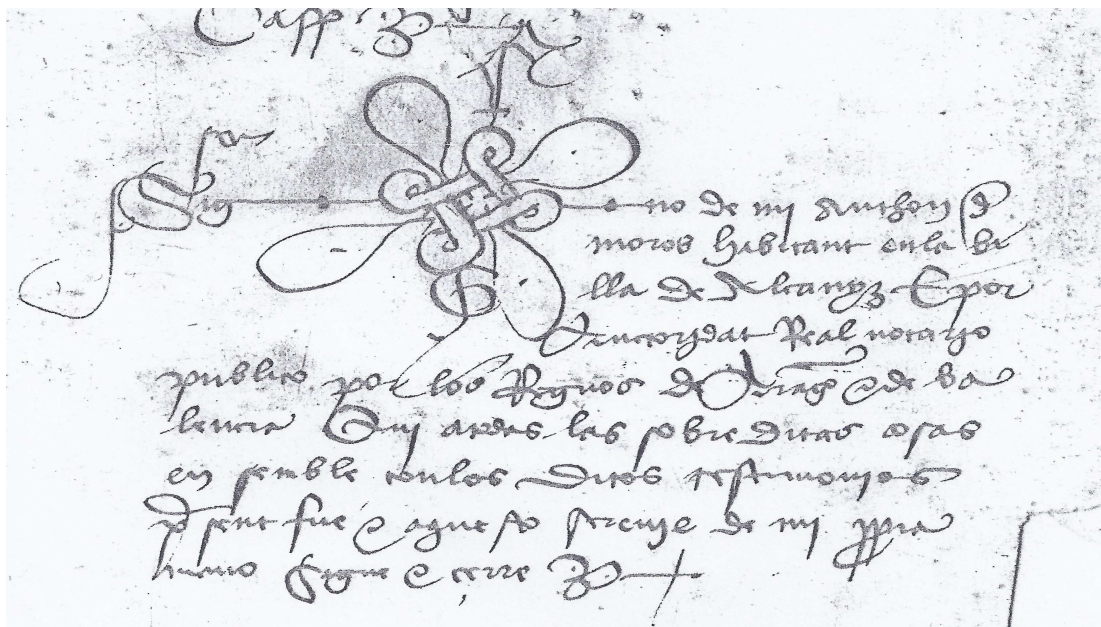 Sig no de mi Anthon d
moros habitant en la bi
lla de Alcanyz E por
auctoridat Real notario
publico por los Regnos de Arag e de va
lencia Qui a todas las sobreditas cosas
en semble con los ditos testimonios
p sent fue e aquesto screvie de mi ppia
mano signe e cerre